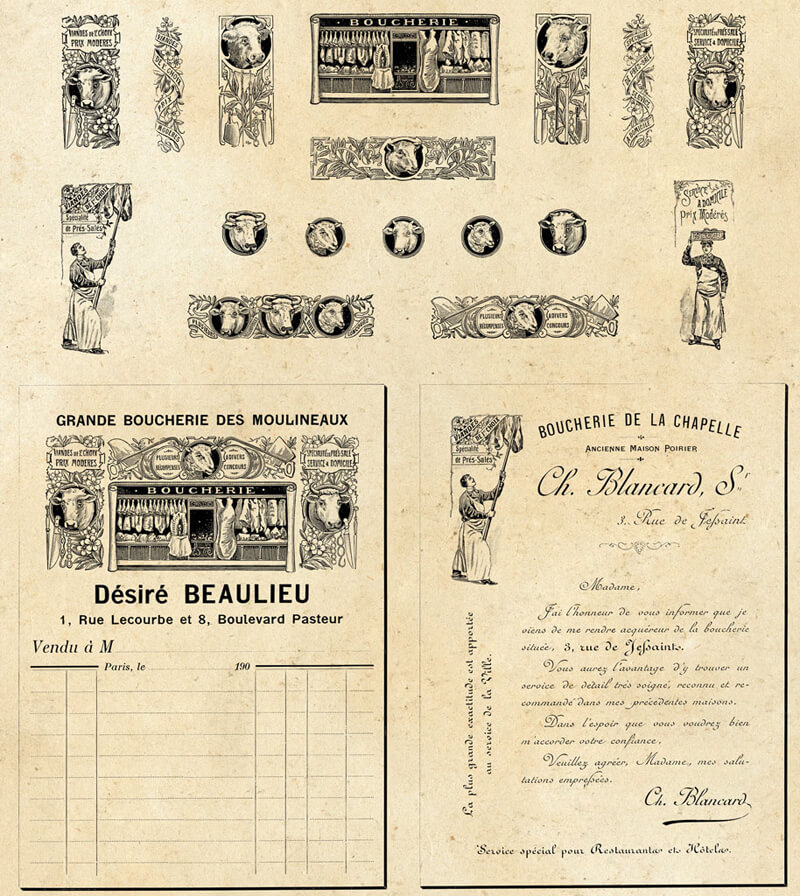 VIANDES DE 1ER CHOIX
PRIX MODERES
BOUCHERIE
SPECIALITÉ DE PRÉS-SALÉ
SERVICE A DOMICILE
Spécialité
de Prés-Salés
Service
A DOMICILE
Prix Modérés
PLUSIEURS
RÉCOMPENSES
A DIVERS
CONCOURS
GRANDE BOUCHERIE DES MOULINEAUX
VIANDES DE 1ER CHOIX
PRIX MODERES
PLUSIEURS
RÉCOMPENSES
A DIVERS
CONCOURS
SPECIALITÉ DE PRÉS-SALE
SERVICE A DOMICILE
BOUCHERIE
Désiré BEAULIEU
1, Rue Lecourbe et 8, Boulevard Pasteur
Vendu à M
Paris, le 190
Spécialité
de Prés-Salés
BOUCHERIE DE LA CHAPELLE
ANCIENNE MAISON POIRIER
Ch. Blancard, Sr
3, Rue de Jessaint
Madame,
J'ai l'honneur de vous informer que je
viens de me rendre acquéreur de la boucherie
située, 3, rue de Jessaint.
Vous aurez l'avantage d'y trouver un
service de détail très soigné, reconnu et re-
commandé dans mes précédentes maisons.
Dans l'espoir que vous voudrez bien
m'accorder votre confiance,
Veuillez agréer, Madame, mes salu-
tations empressées.
Ch. Blancard
La plus grande exactitude est apportée
au service de la Ville.
Service spécial pour Restaurants et Hôtels.